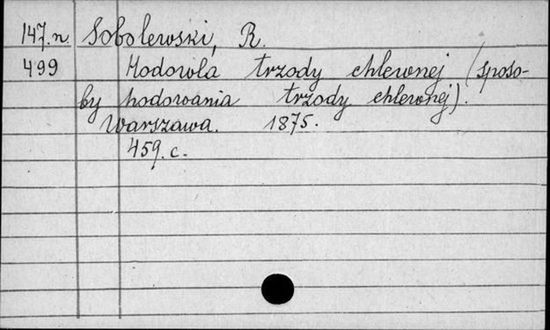 147.n Sobolewski, R.
499 Hodowla trzody chlewnej (sposo-
by hodowania trzody chlewnej).
Warszawa. 1875.
459. c.